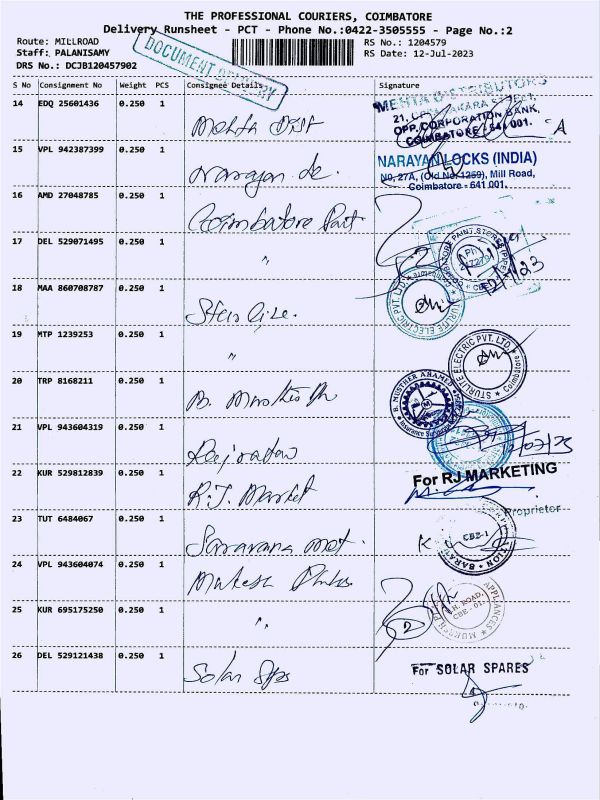 THE PROFESSIONAL COURIERS, COIMBATORE
Delivery Runsheet - PCT - Phone No.:0422-3505555 - Page No.:2
Route: MILLROAD
RS No.: 1204579
Staff: PALANISAMY
RS Date: 12-Jul-2023
DRS No.: DCJB120457902
DOCUMENT DELIVERY
S No Consignment No Weight PCS Consignee Details Signature
14 EDQ 25601436 0.250 1
Mehta Dist
MEHTA DISTRIBUTORS
OPP. CORPORATION BANK,
COIMBATORE - 641 001.
15 VPL 942387399 0.250 1
Narayan
NARAYAN LOCKS (INDIA)
No, 27A, (Old No. 1259), Mill Road,
Coimbatore - 641 001.
16 AMD 27048785 0.250 1
Coimbatore Paint
17 DEL 529071495 0.250 1
"
COIMBATORE PAINT STORES
CBE
12/7/23
18 MAA 860708787 0.250 1
STURLITE ELECTRIC PVT. LTD.
19 MTP 1239253 0.250 1
"
STURLITE ELECTRIC PVT. LTD.
Coimbatore
20 TRP 8168211 0.250 1
B. MUSTHER AHAMED
Insurance Surveyor
21 VPL 943604319 0.250 1
12/07/23
22 KUR 529812839 0.250 1
R.J. Market
For RJ MARKETING
Proprietor
23 TUT 6484067 0.250 1
Saravana mot.
CBE-1
24 VPL 943604074 0.250 1
Mukesh
25 KUR 695175250 0.250 1
"
2
APPLIANCES
CBE - 01.
26 DEL 529121438 0.250 1
Solar Sps
For SOLAR SPARES